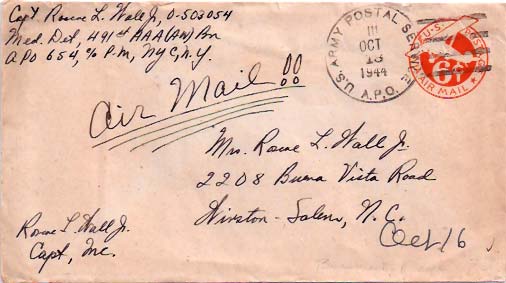 Capt Rosce L. Wall Jr, O-503054
Med. Det, 491st AAA(AW)Bn
APO 654, c/o P.M, NYC, N.Y.
Air Mail!!
U.S. ARMY POSTAL SERVICE
III
OCT
13
1944
A.P.O.
U.S. POSTAGE
6¢
AIR MAIL
Mrs. Roscoe L. Wall Jr.
2208 Buena Vista Road
Winston-Salem, N.C.
Oct 16
Roscoe L. Wall Jr.
Capt, MC.